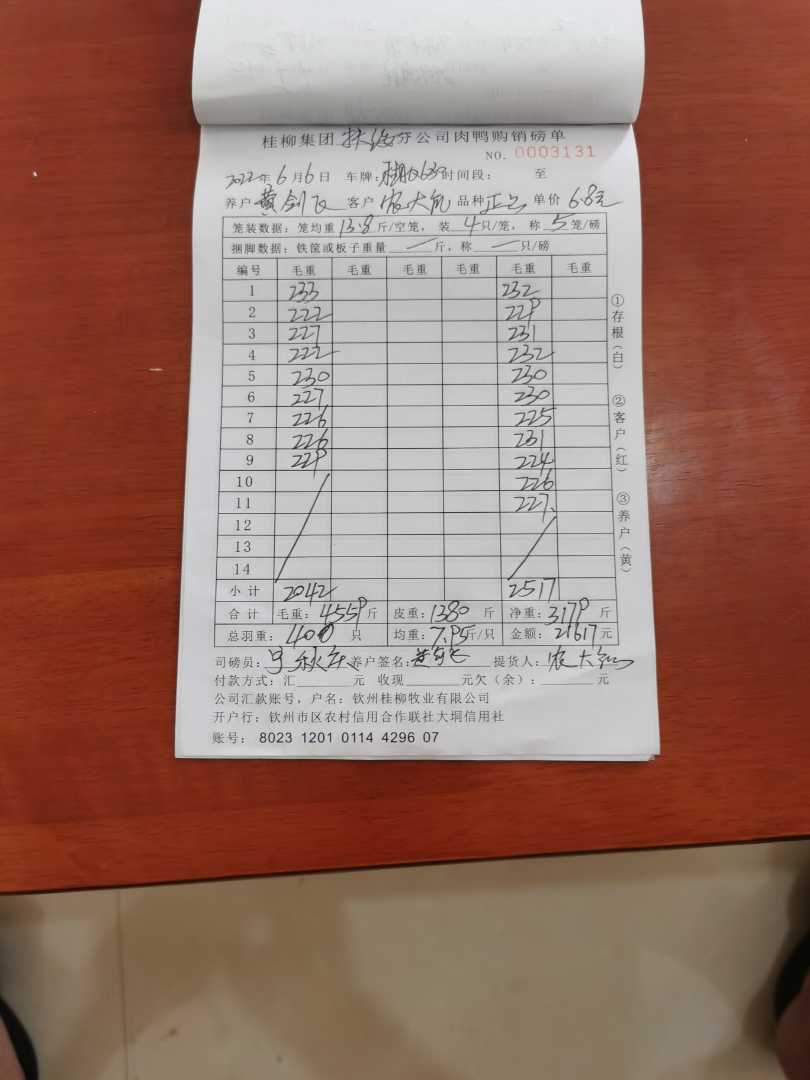 桂柳集团 扶绥分公司肉鸭购销磅单
NO. 0003131
2022年6月6日 车牌: 时间段: 至
养户 黄剑飞 客户 农大 品种 正 单价 6.8元
笼装数据: 笼均重13.8斤/空笼, 装4只/笼, 称5笼/磅
捆脚数据: 铁筐或板子重量—斤, 称—只/磅
编号 毛重 毛重 毛重 毛重 毛重 毛重
1 233 232
2 222 229
3 227 231
4 222 232
5 230 230
6 227 230
7 226 225
8 226 231
9 229 224
10 226
11 227
12
13
14
小计 2042 2517
合计 毛重: 4559斤 皮重: 1380斤 净重: 3179斤
总羽重: 400只 均重: 7.95斤/只 金额: 21617元
司磅员: 养户签名: 提货人: 农大
付款方式: 汇 元 收现 元欠(余): 元
公司汇款账号, 户名: 钦州桂柳牧业有限公司
开户行: 钦州市区农村信用合作联社大垌信用社
账号: 8023 1201 0114 4296 07
①存根(白)
②客户(红)
③养户(黄)